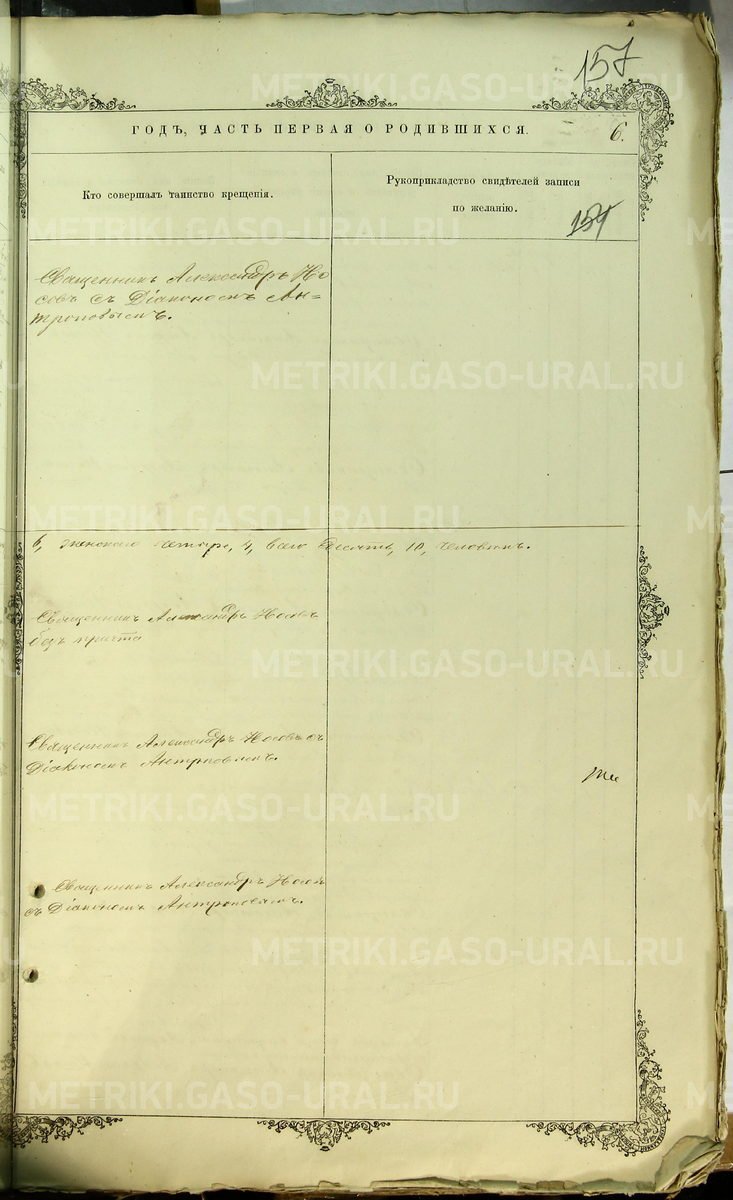 157
ГОДЪ, ЧАСТЬ ПЕРВАЯ О РОДИВШИХСЯ.
6.
Кто совершалъ таинство крещенія.
Рукоприкладство свидѣтелей записи
по желанію.
Священникъ Александръ Но
совъ съ Діакономъ Ан=
троповымъ.
6, женскаго четыре, 4, всего десять, 10, человѣкъ.
Священникъ Александръ Носовъ
безъ причта
Священникъ Александръ Носовъ съ
Діакономъ Антроповымъ.
Священникъ Александръ Носовъ
съ Діакономъ Антроповымъ.
METRIKI.GASO-URAL.RU